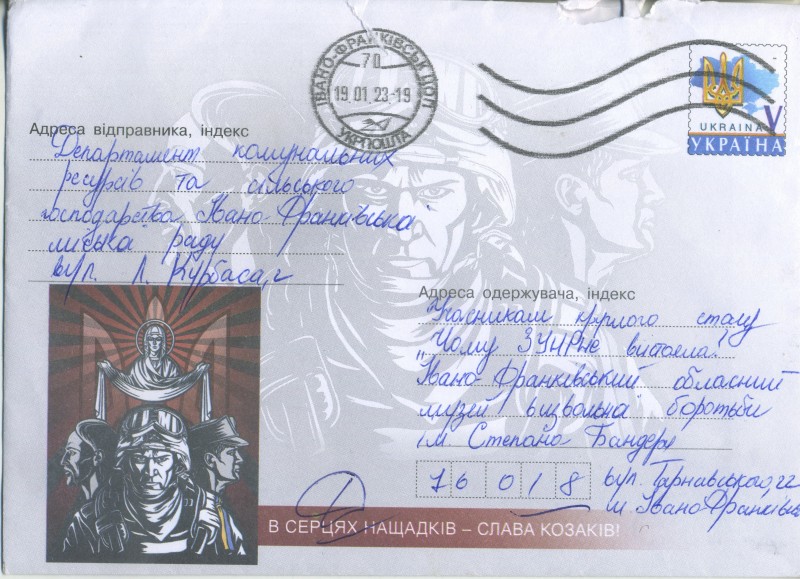 ІВАНО-ФРАНКІВСЬК ЦОП
70
19.01.23-19
УКРПОШТА
UKRAINA V
УКРАЇНА
Адреса відправника, індекс
Департамент комунальних
ресурсів та сільського
господарства Івано-Франківська
міська раду
вул. Л. Курбаса, 2
Адреса одержувача, індекс
Учасникам круглого столу
"Чому ЗУНР не вистояла?"
Івано-Франківський обласний
музей визвольна боротьби
ім. Степана Бандери
76018 вул. Тарнавського, 22
м Івано-Франківськ
В СЕРЦЯХ НАЩАДКІВ – СЛАВА КОЗАКІВ!